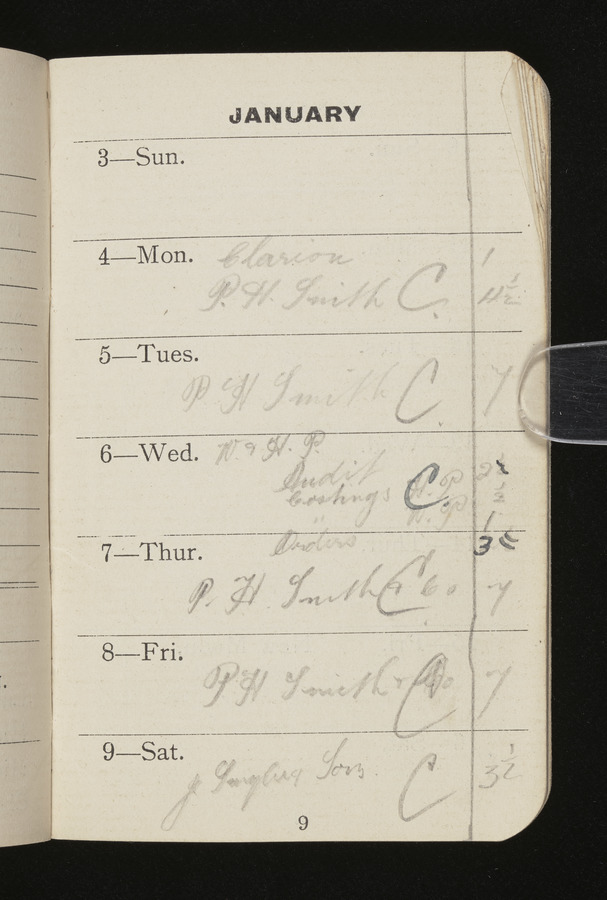 JANUARY
3—Sun.
4—Mon. Clarion 1
P. H. Smith C. 4½
5—Tues.
P H Smith C. 7
6—Wed. W & H. P.
Audit C. H. P 2
Costings W. P ½
Orders 1
7—Thur. 3
P. H. Smith & Co 7
8—Fri.
P H Smith & Co 7
9—Sat.
J Sons C 3½
9